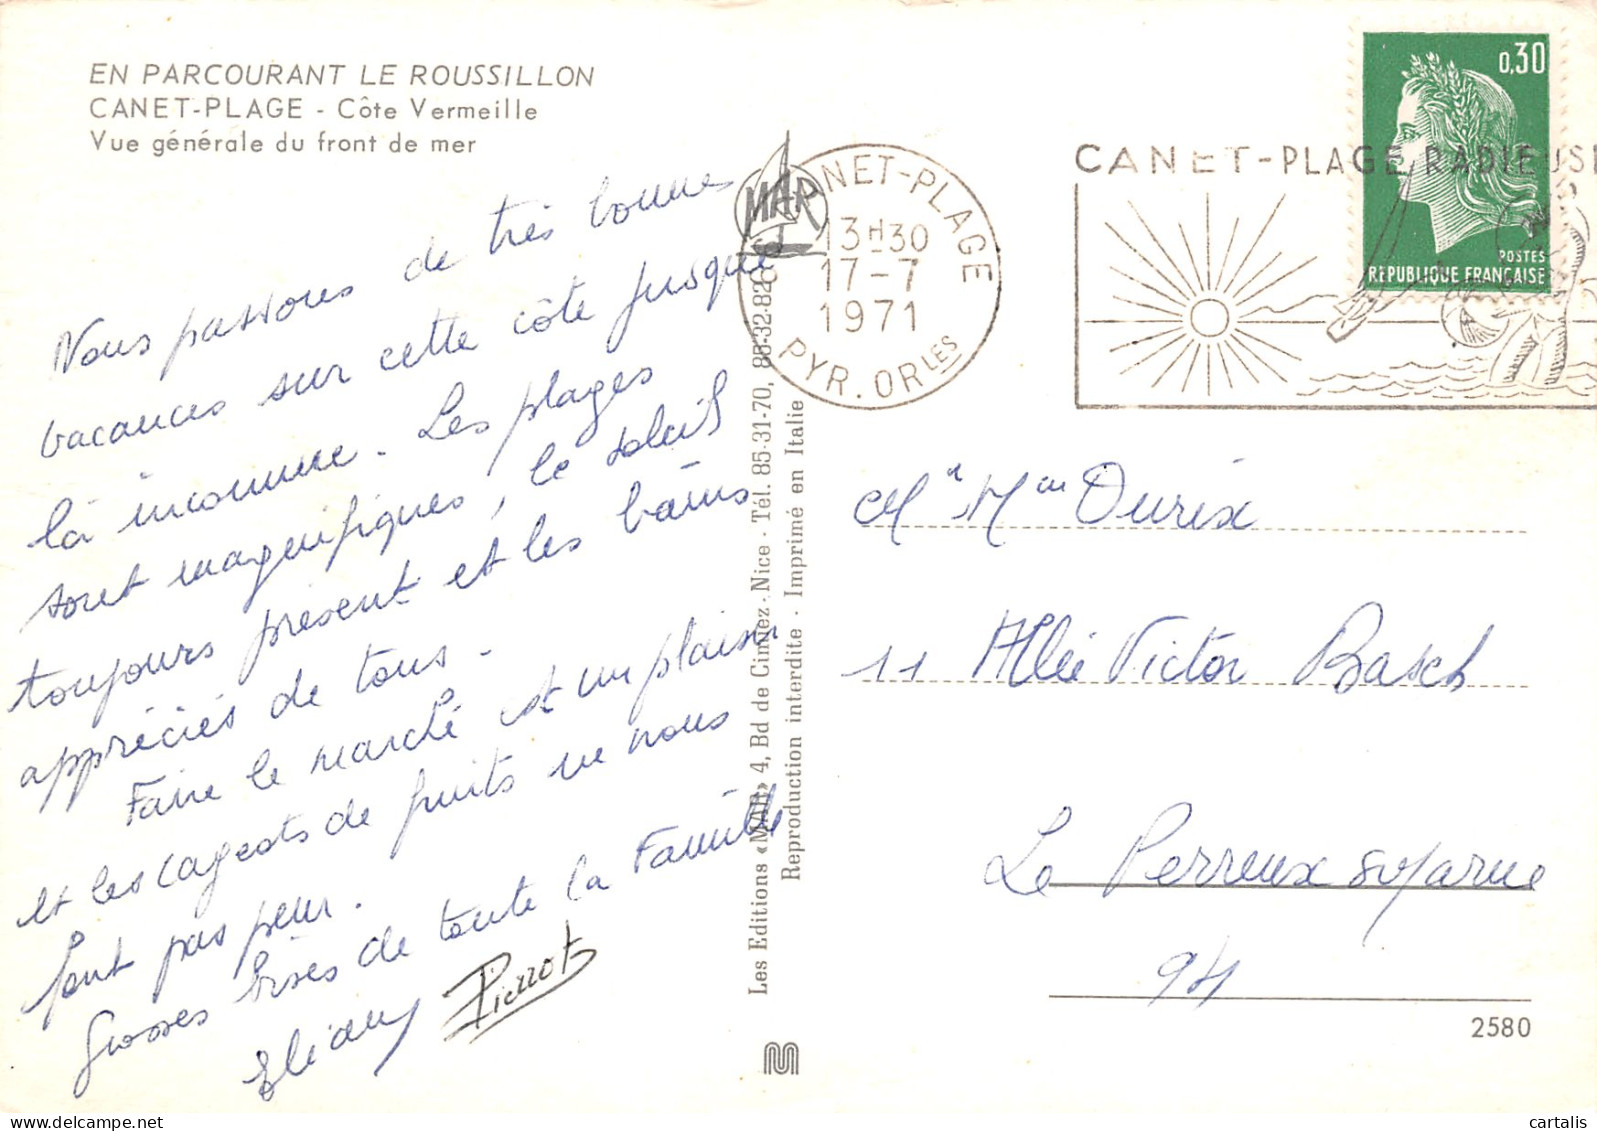 EN PARCOURANT LE ROUSSILLON
CANET-PLAGE - Côte Vermeille
Vue générale du front de mer
Nous passons de très bonnes
vacances sur cette côte jusque
là inconnue. Les plages
sont magnifiques, le soleil
toujours présent et les bains
appréciés de tous.
Faire le marché est un plaisir
et les cageots de fruits ne nous
font pas peur.
Grosses bises de toute la Famille
Eliane Pierrot
MAR
CANET-PLAGE
13H30
17-7
1971
PYR. ORLES
CANET-PLAGE RADIEUSE
0,30
POSTES
REPUBLIQUE FRANÇAISE
Les Editions «MAR» 4, Bd de Cimiez - Nice - Tél. 85-31-70, 88-32-82
Reproduction interdite - Imprimé en Italie
Mr Mme Durix
11 Allée Victor Basch
Le Perreux s/Marne
94
2580
cartalis